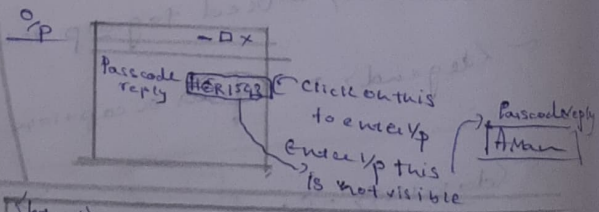 O/p
- □ x
Passcode
reply HER1543
Click on this
to enter i/p
enter i/p this
is not visible
Passcode reply
Aman